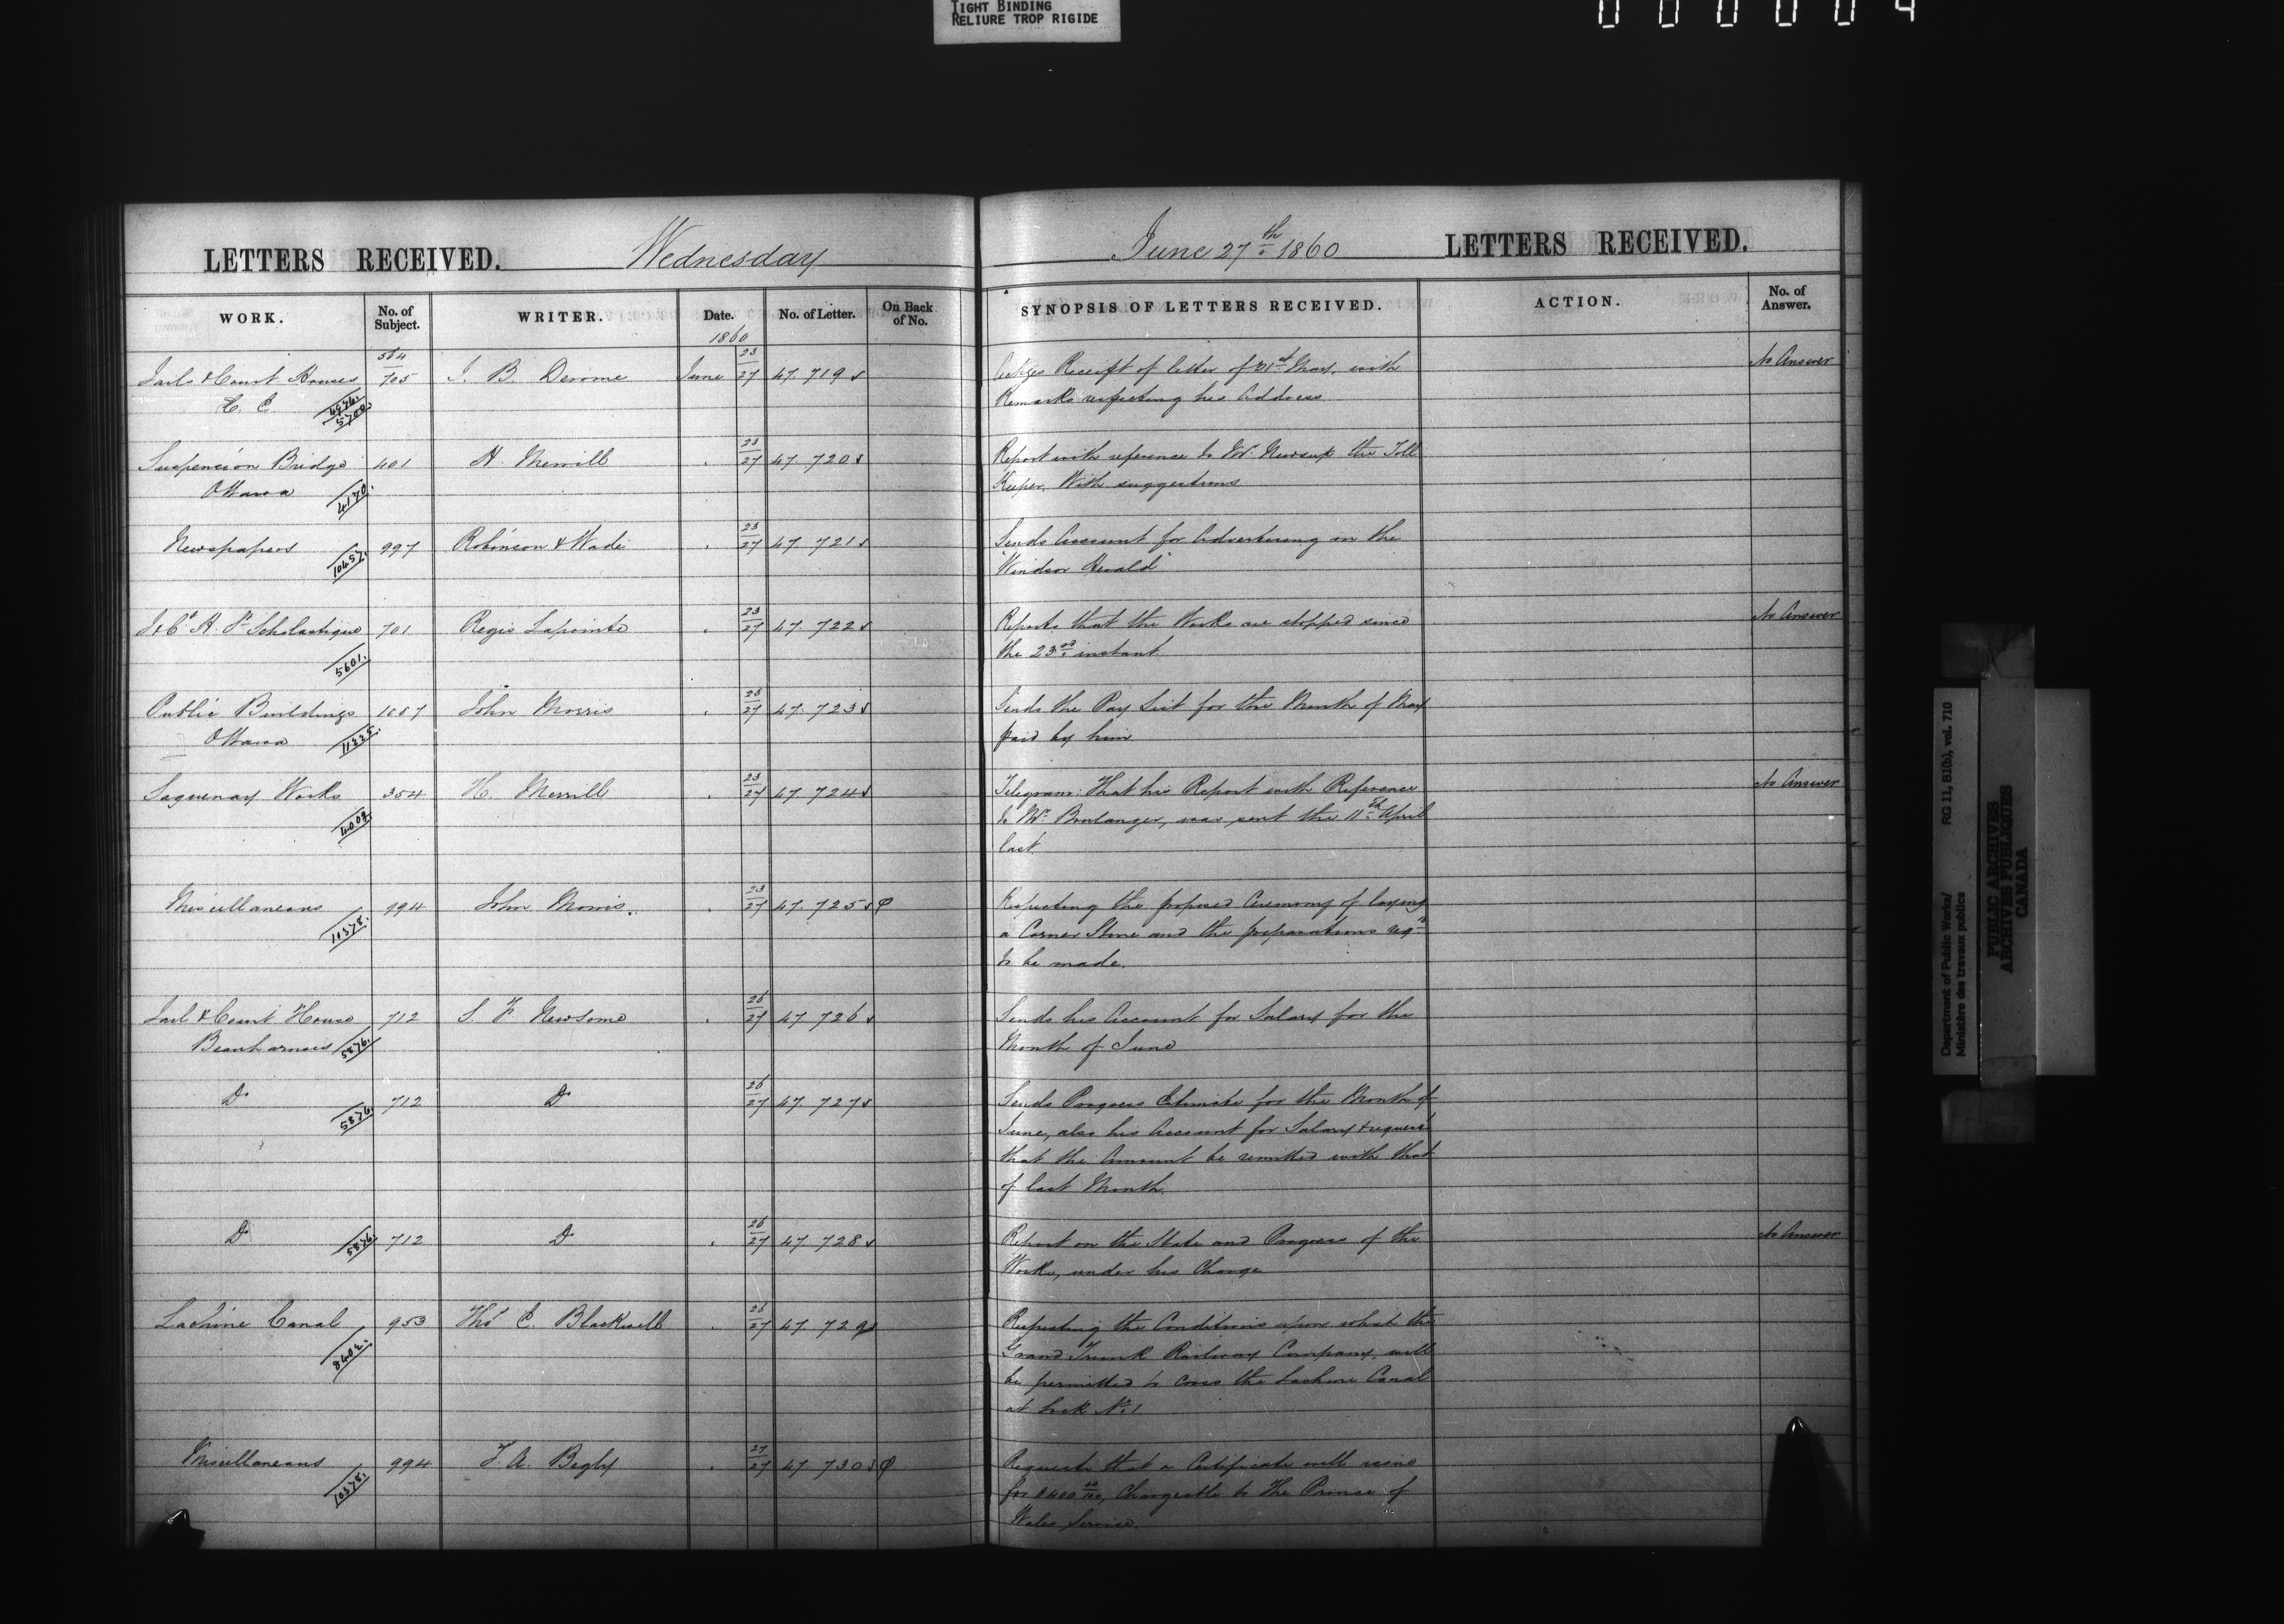 TIGHT BINDING
RELIURE TROP RIGIDE
LETTERS RECEIVED. Wednesday June 27th 1860 LETTERS RECEIVED.
WORK. No. of Subject. WRITER. Date. No. of Letter. On Back of No. SYNOPSIS OF LETTERS RECEIVED. ACTION. No. of Answer.
1860
Jails & Court Houses 564/705 J. B. Derome June 23/27 47.719 Receipt of letter of 31st May, with No Answer
Remarks respecting his Address
Suspension Bridge 401 H. Merrill 23/27 47.720 Report with reference to the Toll
Ottawa 4170. Keeper, With suggestions
Newspapers 10457. 997 Robinson & Wade 23/27 47.721 Sends Account for Advertising in the
"Windsor Herald"
J & Ct H. St Scholastique 701 Regis Lapointe 23/27 47.722 Reports that the Works are stopped since No Answer
5601. the 23rd instant
Public Buildings 1057 John Morris 23/27 47.723 Sends the Pay List for the Month of May
Ottawa 11225. paid by him
Saguenay Works 354 H. Merrill 23/27 47.724 Telegram: That his Report with Reference No Answer
to Mr. Boulanger, was sent the 11th April
last.
Miscellaneous 994 John Morris. 23/27 47.725 Respecting the proposed Ceremony of laying
10378. a Corner Stone and the preparations
to be made.
Jail & Court House 712 S. F. Newsome 26/27 47.726 Sends his Account for Salary for the
Beauharnois 5876. Month of June
Do 5876. 712 Do 26/27 47.727 Sends Progress Estimate for the Month of
June, also his Account for Salary & requests
that the Amount be remitted with that
of last Month.
Do 5876. 712 Do 26/27 47.728 Report on the State and Progress of the No Answer
Works, under his Charge
Lachine Canal 953 Thos E. Blackwell 26/27 47.729 Respecting the Conditions upon which the
8402. Grand Trunk Railway Company, will
be permitted to cross the Lachine Canal
at Lock No. 1
Miscellaneous 994 T. A. Begly 27/27 47.730 Requests that a Certificate will issue
10378. for $400 00/100, Chargeable to The Prince of
Wales Service.
Department of Public Works/ RG 11, B1(b), vol. 710
Ministère des travaux publics
PUBLIC ARCHIVES
ARCHIVES PUBLIQUES
CANADA